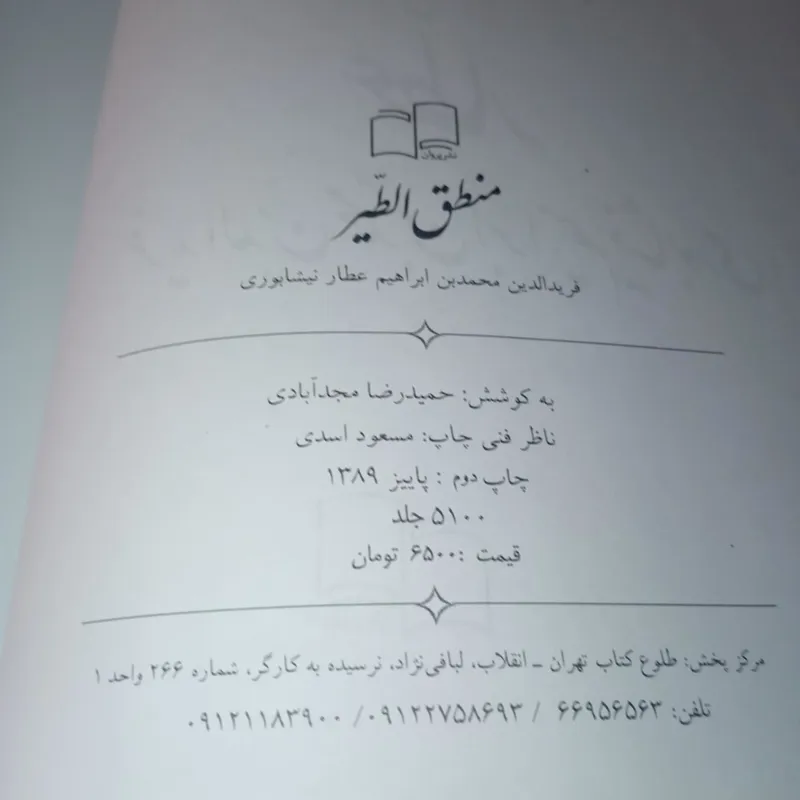 نشر پروان
منطق الطّیر
فریدالدین محمدبن ابراهیم عطار نیشابوری
به کوشش: حمیدرضا مجدآبادی
ناظر فنی چاپ: مسعود اسدی
چاپ دوم : پاییز ۱۳۸۹
۵۱۰۰ جلد
قیمت :۶۵۰۰ تومان
مرکز پخش: طلوع کتاب تهران ـ انقلاب، لبافی‌نژاد، نرسیده به کارگر، شماره ۲۶۶ واحد ۱
تلفن: ۶۶۹۵۶۵۶۳ / ۰۹۱۲۲۷۵۸۶۹۳/ ۰۹۱۲۱۱۸۳۹۰۰